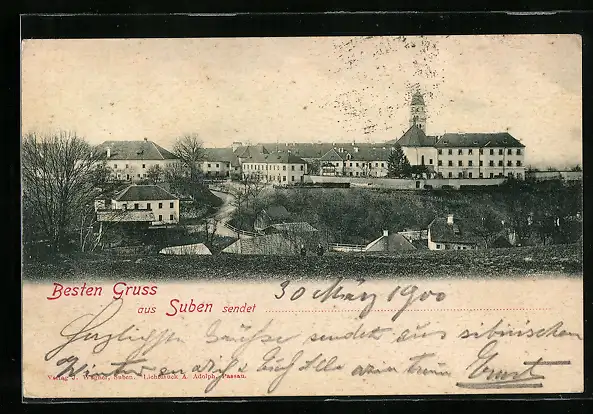 Besten Gruss
aus Suben sendet
30 März 1900
Herzliche Grüsse sendet aus sibirischem
Winter an dich
Ernst
Verlag J. Wagner, Suben. Lichtdruck A. Adolph, Passau.